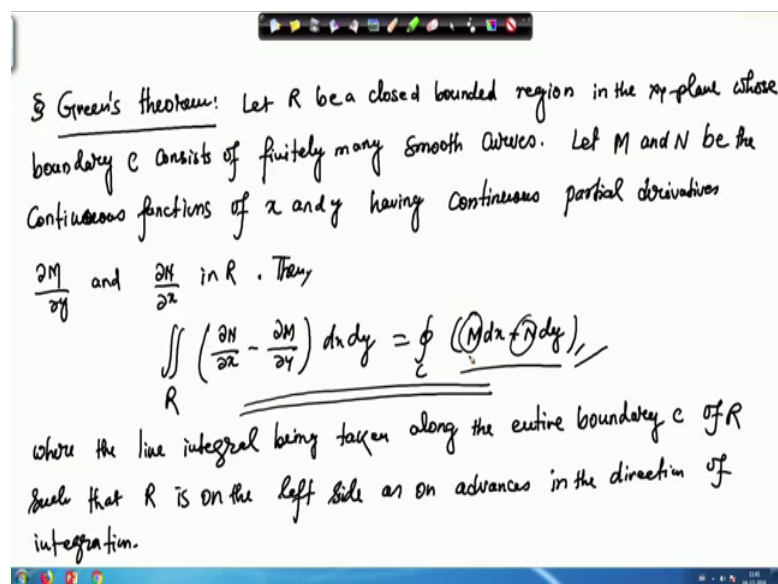 § Green's theorem: Let R be a closed bounded region in the xy-plane whose
boundary C consists of finitely many smooth curves. Let M and N be the
continuous functions of x and y having continuous partial derivatives
∂M/∂y and ∂N/∂x in R. Then,
∬_R (∂N/∂x - ∂M/∂y) dx dy = ∮_C (M dx + N dy),
where the line integral being taken along the entire boundary C of R
such that R is on the left side as on advances in the direction of
integration.